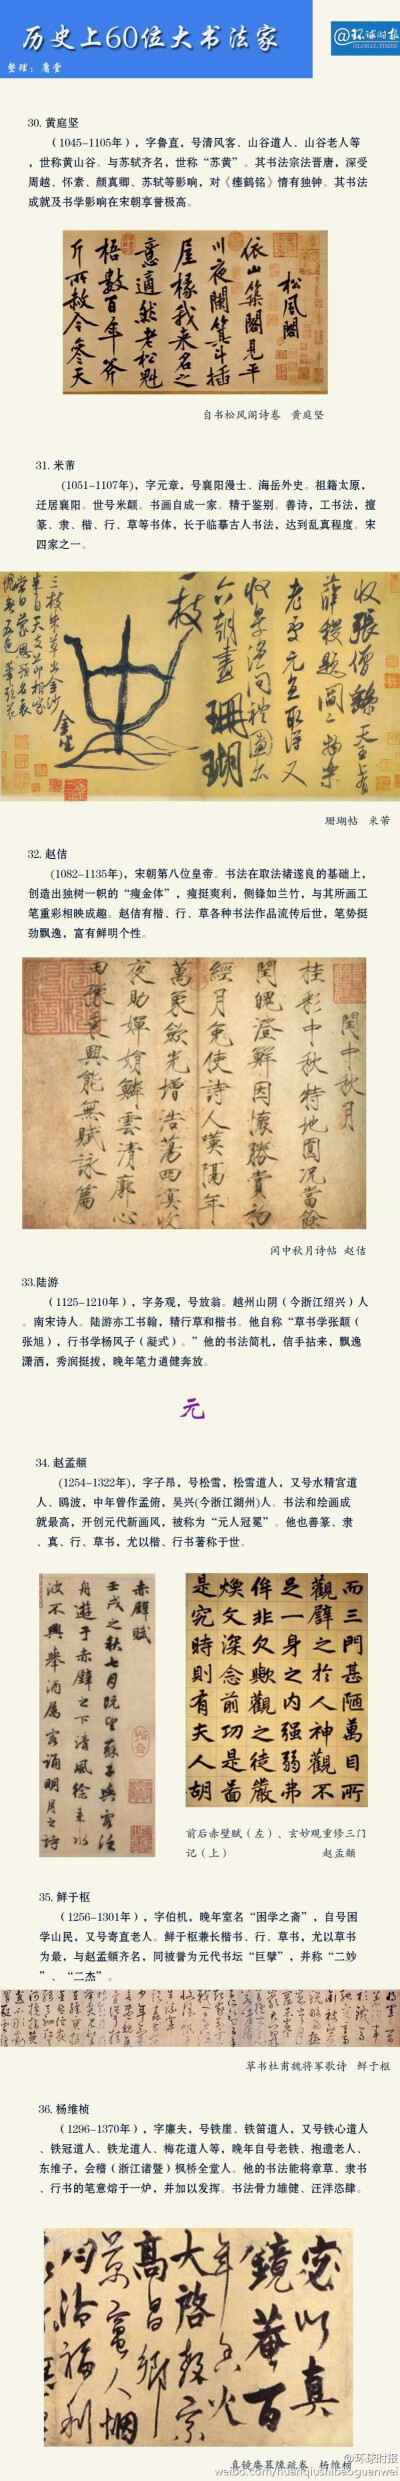 历史上60位大书法家
整理：庸堂
@环球时报
GLOBAL TIMES
30. 黄庭坚
（1045-1105年），字鲁直，号清风客、山谷道人、山谷老人等
，世称黄山谷。与苏轼齐名，世称“苏黄”。其书法宗法晋唐，深受
周越、怀素、颜真卿、苏轼等影响，对《瘗鹤铭》情有独钟。其书法
成就及书学影响在宋朝享誉极高。
松风阁
依山筑阁见平
川夜阑箕斗插
屋椽我来名之
意适然老松魁
梧数百年斧
斤所赦今参天
自书松风阁诗卷 黄庭坚
31. 米芾
(1051-1107年)，字元章，号襄阳漫士、海岳外史。祖籍太原，
迁居襄阳。世号米颠。书画自成一家。精于鉴别。善诗，工书法，擅
篆、隶、楷、行、草等书体，长于临摹古人书法，达到乱真程度。宋
四家之一。
收張僧繇天王上有
薛稷題閻二物樂
老處元直取得又
收景温问禮圖亦
六朝畫珊瑚
一枝
三枝朱草出金沙
来自天支節相家
當日蒙恩預名表
愧無五色筆頭花
金坐
珊瑚帖 米芾
32. 赵佶
(1082-1135年)，宋朝第八位皇帝。书法在取法褚遂良的基础上，
创造出独树一帜的“瘦金体”，瘦挺爽利，侧锋如兰竹，与其所画工
笔重彩相映成趣。赵佶有楷、行、草各种书法作品流传后世，笔势挺
劲飘逸，富有鲜明个性。
閏中秋月
桂彩中秋特地圓況當餘
閏魄澄鮮因懷勝賞初
經月免使詩人嘆隔年
萬象斂光增浩蕩四溟收
夜助嬋娟鱗雲清廓心
田豫乘興能無賦詠篇
闰中秋月诗帖 赵佶
33.陆游
（1125-1210年），字务观，号放翁。越州山阴（今浙江绍兴）人
。南宋诗人。陆游亦工书翰，精行草和楷书。他自称“草书学张颠（
张旭），行书学杨风子（凝式）。”他的书法简札，信手拈来，飘逸
潇洒，秀润挺拔，晚年笔力遒健奔放。
元
34. 赵孟頫
(1254-1322年)，字子昂，号松雪，松雪道人，又号水精宫道
人、鸥波，中年曾作孟俯，吴兴(今浙江湖州)人。书法和绘画成
就最高，开创元代新画风，被称为“元人冠冕”。他也善篆、隶
、真、行、草书，尤以楷、行书著称于世。
赤壁賦
壬戌之秋七月既望蘇子與客泛
舟遊于赤壁之下清風徐来水
波不興舉酒属客誦明月之詩
而三門甚陋萬目所
觀辟之於人神觀不
足一身之内强弱弗
侔非欠歟觀之徒嚴
煥文深念前功是啚
是究時則有夫人胡
前后赤壁赋（左）、玄妙观重修三门
记（上） 赵孟頫
35. 鲜于枢
（1256-1301年），字伯机，晚年室名“困学之斋”，自号困
学山民，又号寄直老人。鲜于枢兼长楷书、行、草书，尤以草书
为最，与赵孟頫齐名，同被誉为元代书坛“巨擘”，并称“二妙
”、“二杰”。
草书杜甫魏将军歌诗 鲜于枢
36. 杨维桢
（1296-1370年），字廉夫，号铁崖、铁笛道人，又号铁心道人
、铁冠道人、铁龙道人、梅花道人等，晚年自号老铁、抱遗老人、
东维子，会稽（浙江诸暨）枫桥全堂人。他的书法能将章草、隶书
、行书的笔意熔于一炉，并加以发挥。书法骨力雄健、汪洋恣肆。
宓以真
鏡菴百
年香火
大啓教宗
高昌鄉
景靈人惘
均沾福利
真镜庵募缘疏卷 杨维桢
@环球时报
weibo.com/huanqiushibaoguanwei